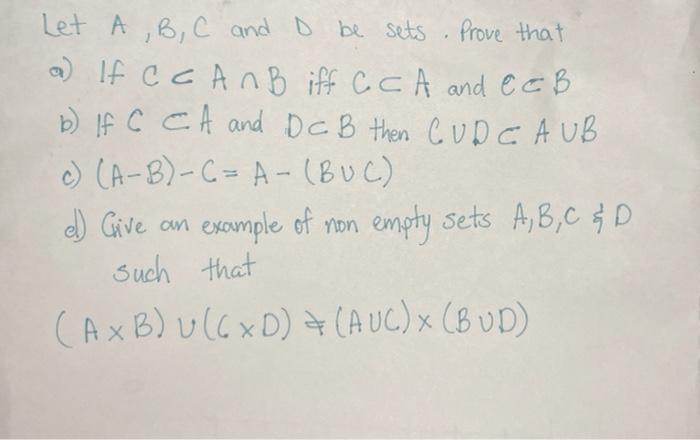 Let A, B, C and D be sets. Prove that
a) If C ⊂ A ∩ B iff C ⊂ A and C ⊂ B
b) If C ⊂ A and D ⊂ B then C ∪ D ⊂ A ∪ B
c) (A-B)-C = A - (B ∪ C)
d) Give an example of non empty sets A, B, C & D
such that
(A × B) ∪ (C × D) ≠ (A ∪ C) × (B ∪ D)